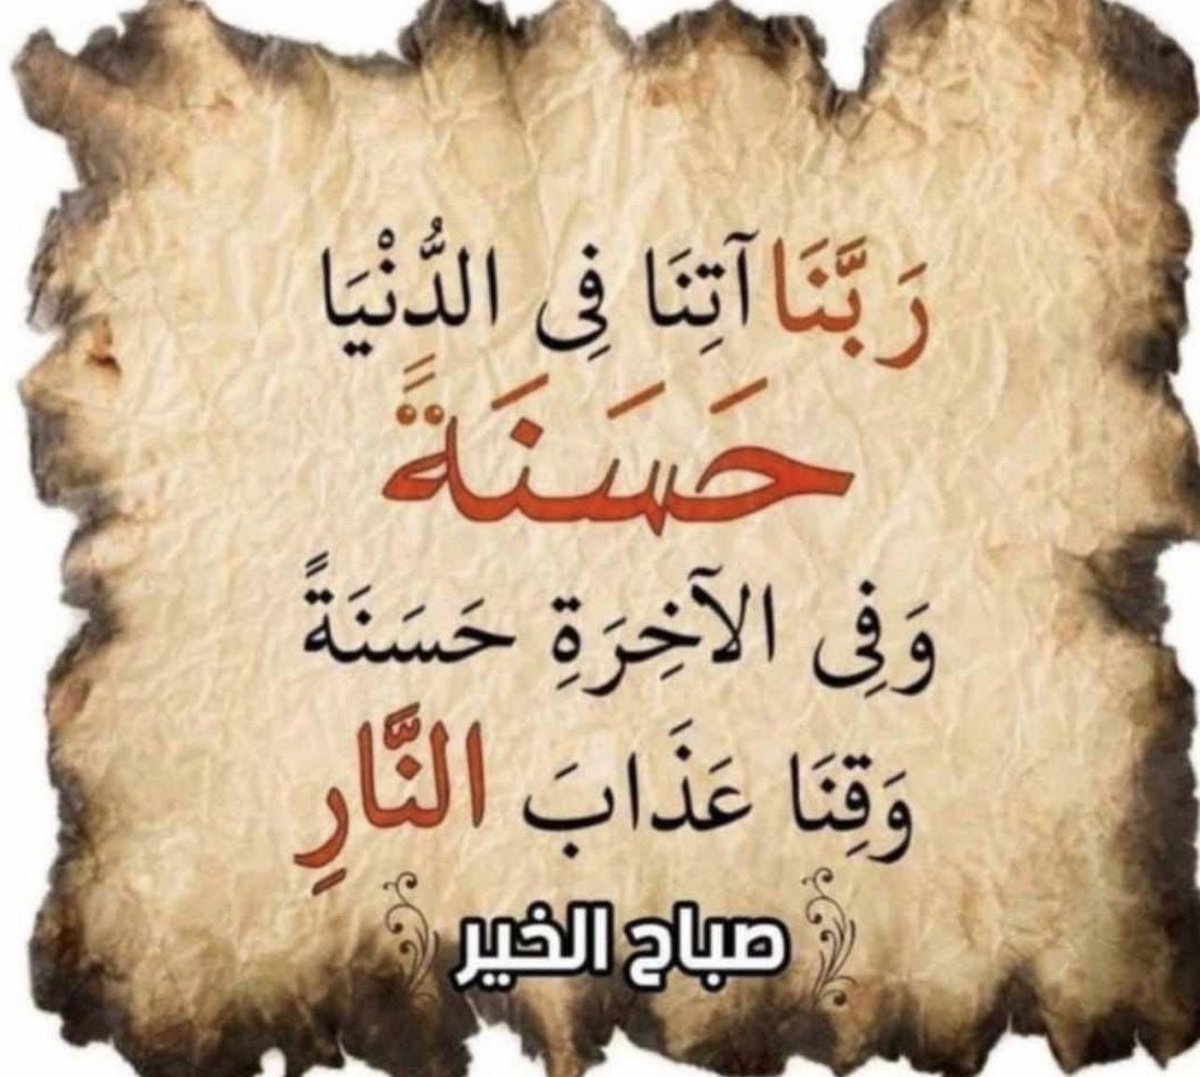 رَبَّنَا آتِنَا فِى الدُّنْيَا
حَسَنَةً
وَفِى الآخِرَةِ حَسَنَةً
وَقِنَا عَذَابَ النَّارِ
صباح الخير